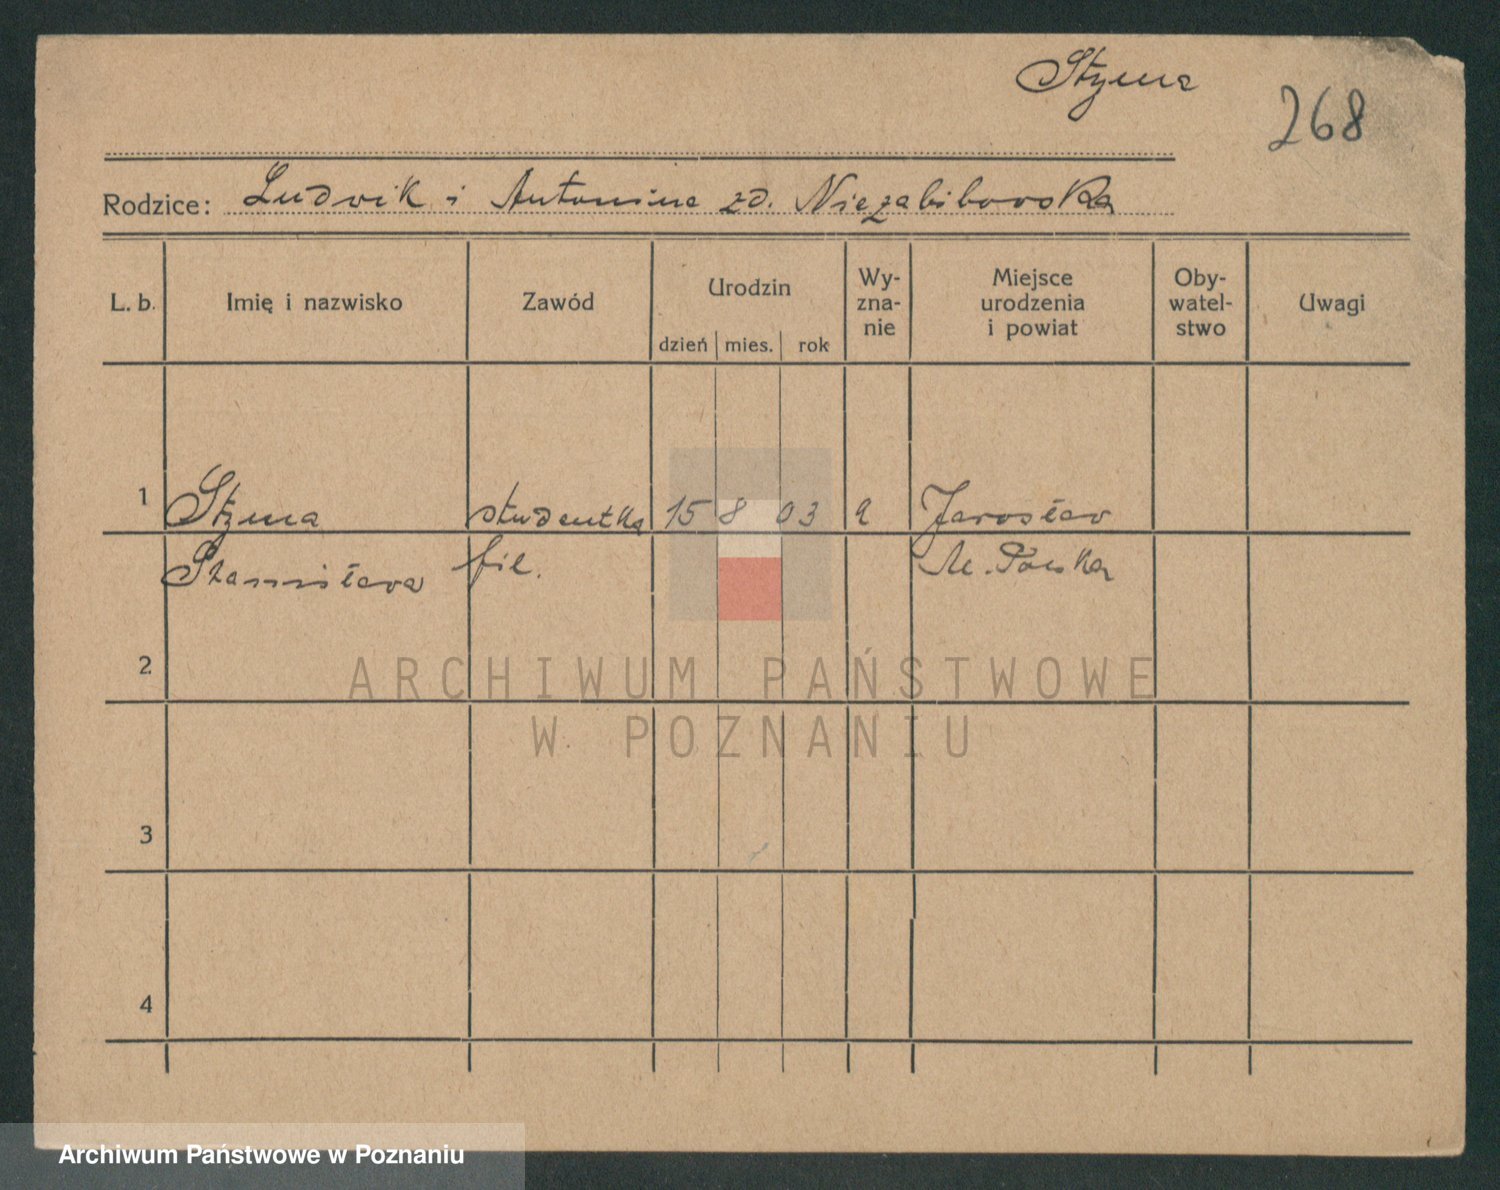 Styma
268
Rodzice: Ludwik i Antonina zd. Niezabitowska
L. b.
Imię i nazwisko
Zawód
Urodzin
dzień mies. rok
Wy-
zna-
nie
Miejsce
urodzenia
i powiat
Oby-
watel-
stwo
Uwagi
1 studentka 15 8 03 Jarosław
Stanisława fil. M. Polska
2
3
4
ARCHIWUM PAŃSTWOWE
W POZNANIU
Archiwum Państwowe w Poznaniu